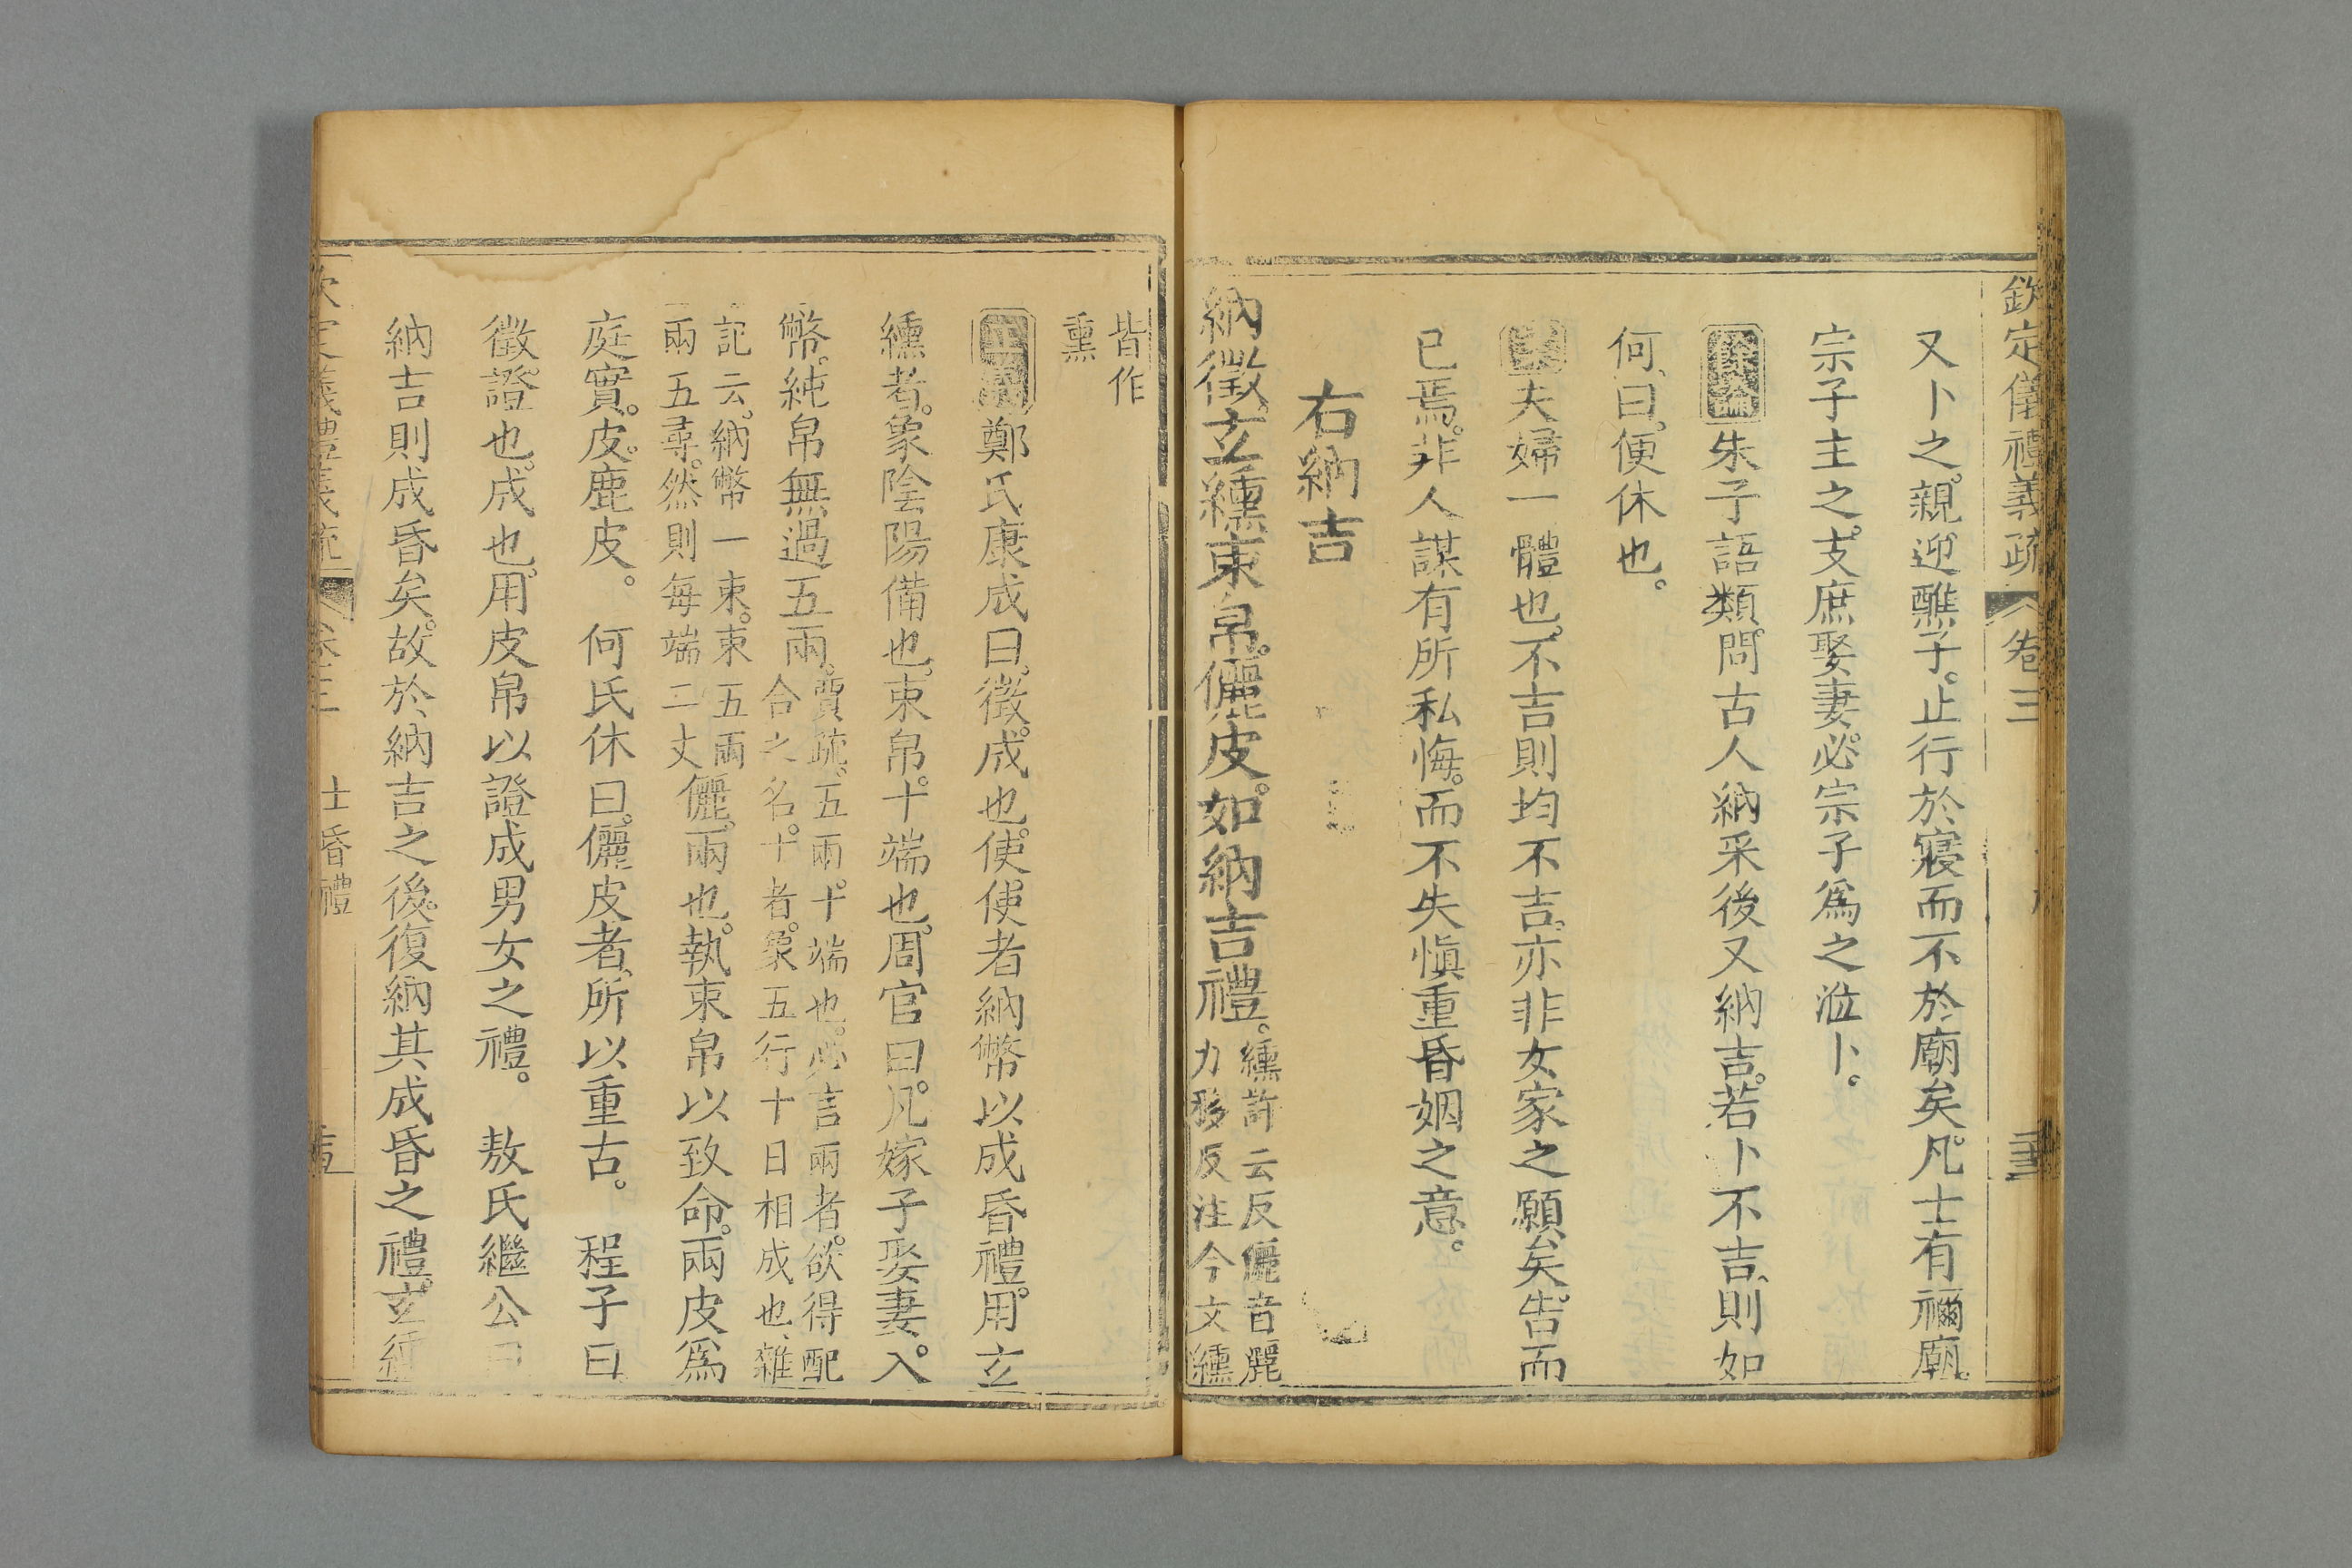 欽定儀禮義疏 卷三
又卜之。親迎醮子。止行於寢而不於廟矣。凡士有禰廟。
宗子主之。支庶娶妻。必宗子爲之涖卜。
餘論朱子語類。問古人納采後又納吉。若卜不吉、則如
何、曰。便休也。
夫婦一體也。不吉則均不吉。亦非女家之願矣。告而
已焉。非人謀有所私悔。而不失愼重昏姻之意。
右納吉
納徵。玄纁束帛。儷皮。如納吉禮。纁許云反儷音麗
力移反注今文纁
皆作
熏
正義鄭氏康成曰。徵。成也。使使者納幣以成昏禮。用玄
纁者。象陰陽備也。束帛。十端也。周官曰。凡嫁子娶妻。入
幣。純帛無過五兩。賈疏。五兩。十端也。必言兩者。欲得配
合之名。十者。象五行十日相成也、雜
記云。納幣一束。束五兩
兩五尋。然則每端二丈儷。兩也。執束帛以致命。兩皮爲
庭實。皮。鹿皮。 何氏休曰。儷皮者、所以重古。 程子曰
徵。證也。成也。用皮帛以證成男女之禮。 敖氏繼公曰
納吉則成昏矣。故於納吉之後。復納其成昏之禮。玄纁
欽定儀禮義疏 卷三 士昏禮